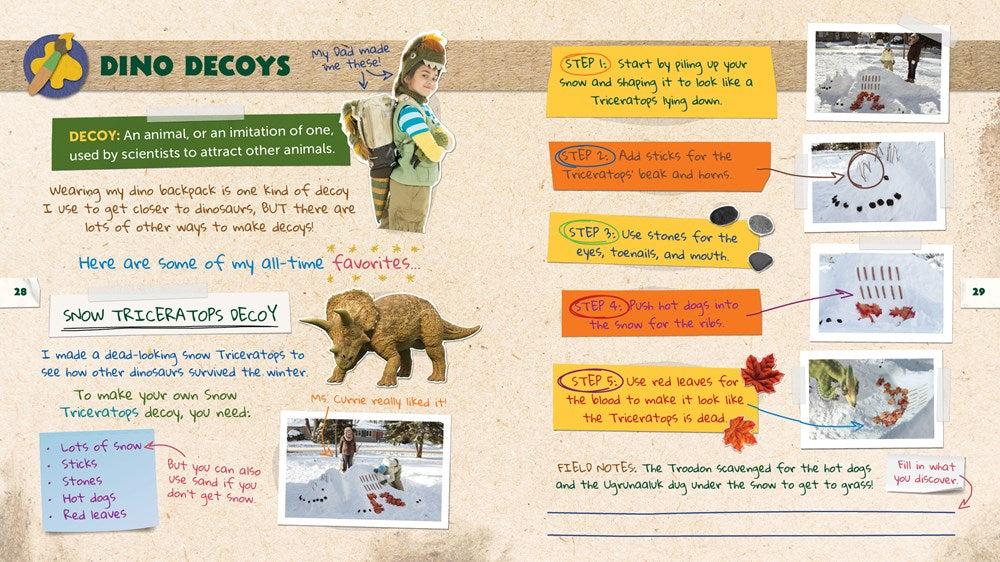 DINO DECOYS
My Dad made
me these!
DECOY: An animal, or an imitation of one,
used by scientists to attract other animals.
Wearing my dino backpack is one kind of decoy
I use to get closer to dinosaurs, BUT there are
lots of other ways to make decoys!
Here are some of my all-time favorites...
28
SNOW TRICERATOPS DECOY
I made a dead-looking snow Triceratops to
see how other dinosaurs survived the winter.
To make your own Snow
Triceratops decoy, you need:
• Lots of snow
• Sticks
• Stones
• Hot dogs
• Red leaves
But you can also
use sand if you
don't get snow.
Ms. Currie really liked it!
STEP 1: Start by piling up your
snow and shaping it to look like a
Triceratops lying down.
STEP 2: Add sticks for the
Triceratops' beak and horns.
STEP 3: Use stones for the
eyes, toenails, and mouth.
29
STEP 4: Push hot dogs into
the snow for the ribs.
STEP 5: Use red leaves for
the blood to make it look like
the Triceratops is dead.
FIELD NOTES: The Troodon scavenged for the hot dogs
and the Ugrunaaluk dug under the snow to get to grass!
Fill in what
you discover.